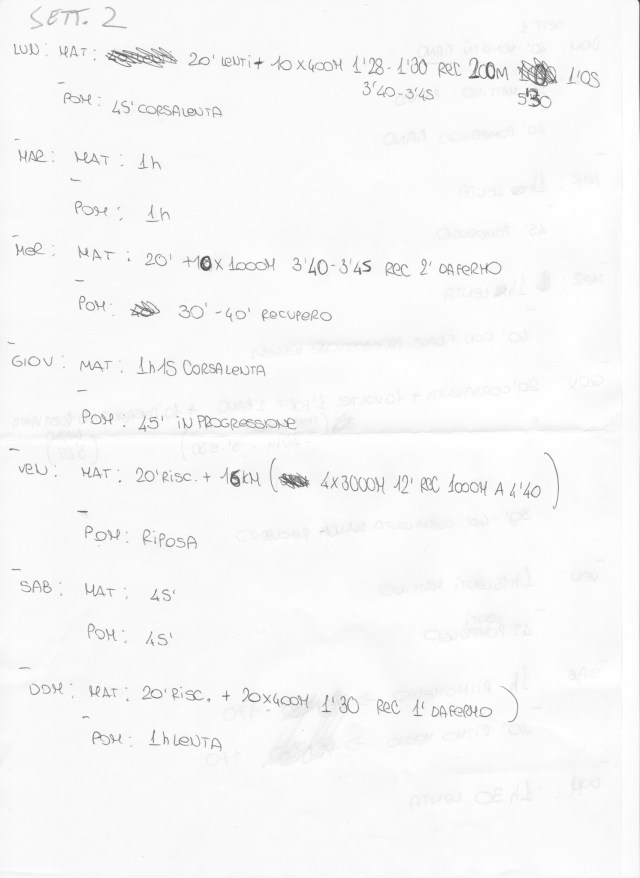 SETT. 2
LUN: MAT: 20' LENTI + 10X400M 1'28 - 1'30 REC 200M 1'05
3'40-3'45 5'30
POM: 45' CORSA LENTA
MAR: MAT: 1h
POM: 1h
MER: MAT: 20' + 10X1000M 3'40-3'45 REC 2' DA FERMO
POM: 30' - 40' RECUPERO
GIOV: MAT: 1h15 CORSA LENTA
POM: 45' IN PROGRESSIONE
VEN: MAT: 20' RISC. + 16KM ( 4X3000M 12' REC 1000M A 4'40 )
POM: RIPOSA
SAB: MAT: 45'
POM: 45'
DOM: MAT: 20' RISC. + 20X400M 1'30 REC 1' DA FERMO )
POM: 1h LENTA